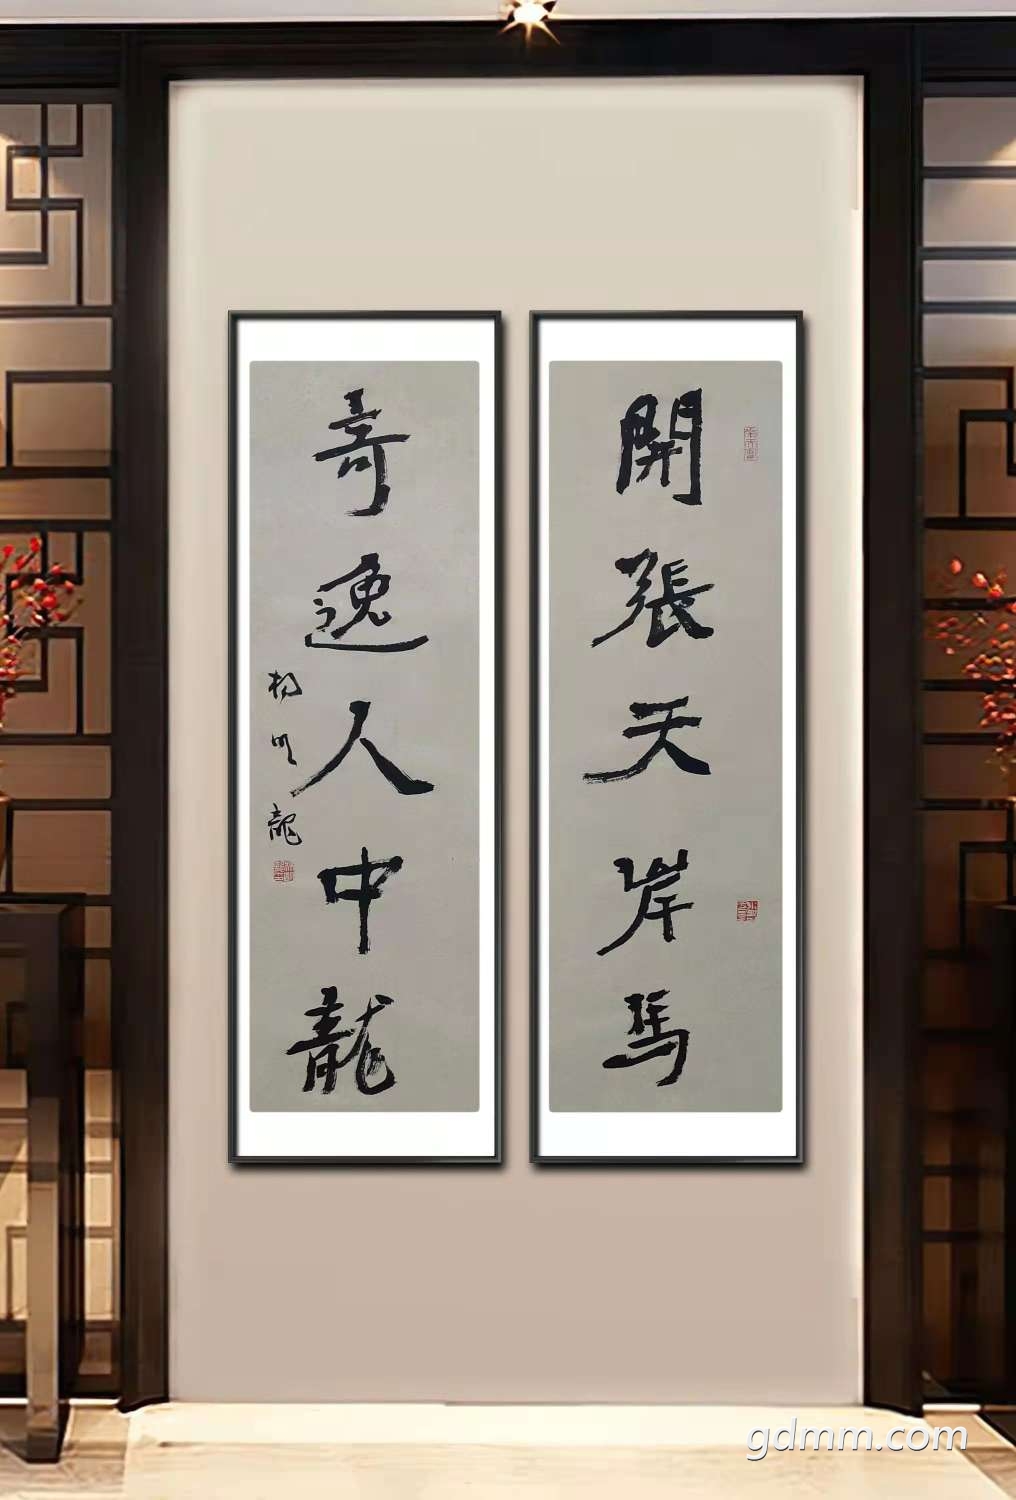 開張天岸馬
奇逸人中龍
楊明龍
gdmm.com